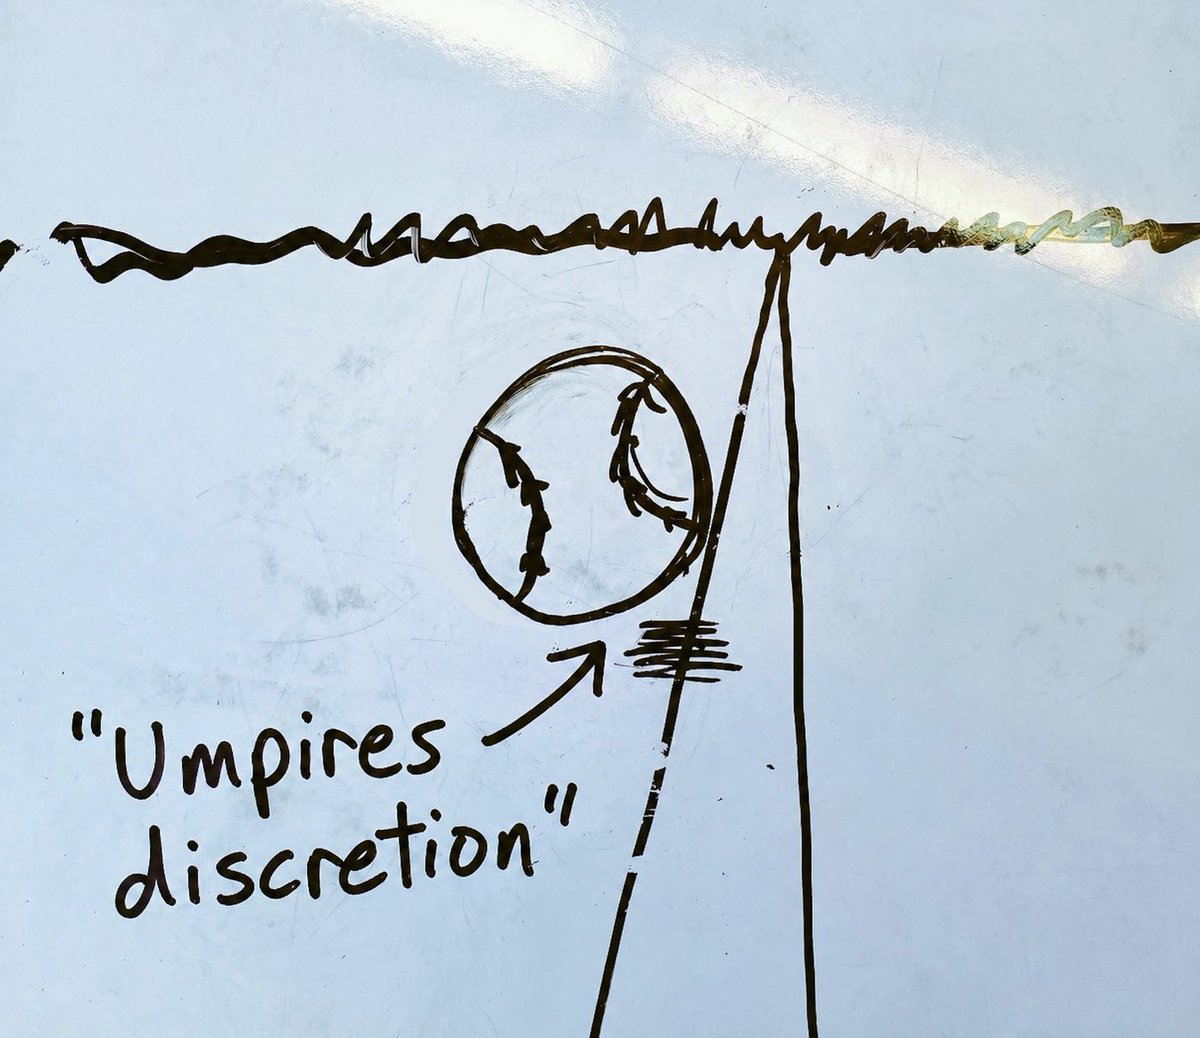 "Umpires
discretion"